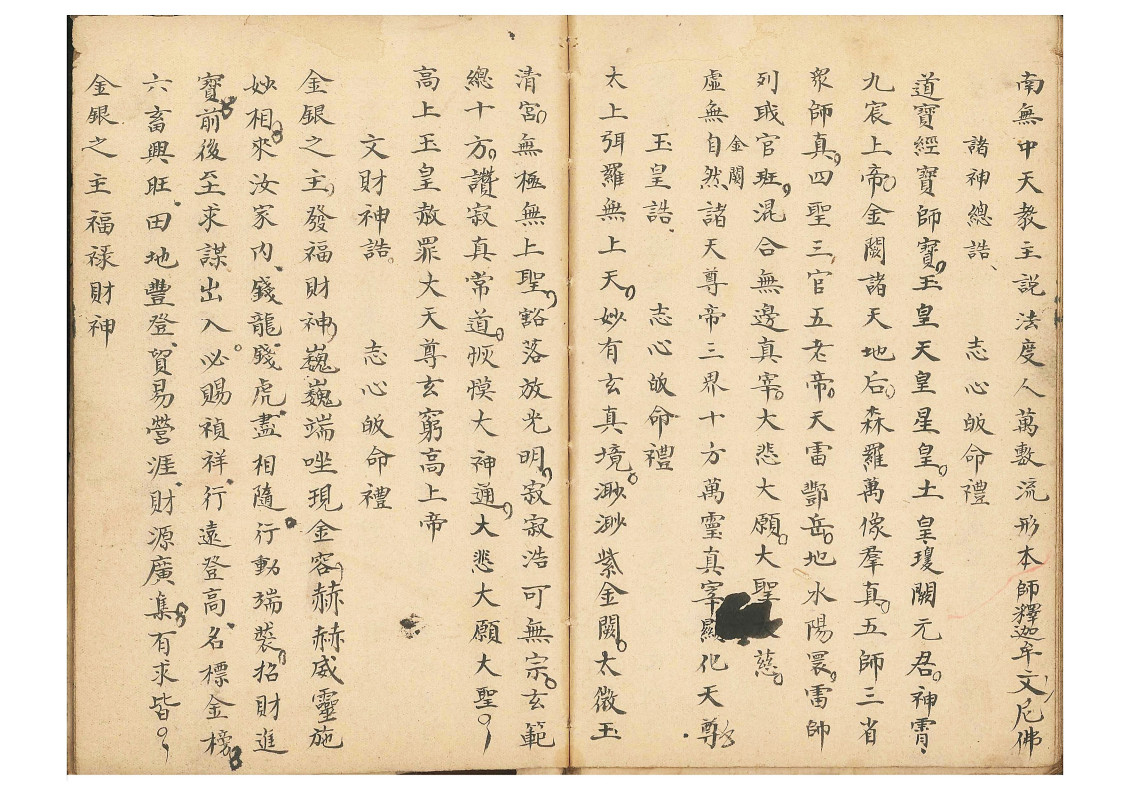 南無中天教主説法度人萬敷流形本師釋迦牟文尼佛
諸神總誥、志心皈命禮
道寶經寶師寶。玉皇天皇星皇。土皇瓊闕元君。神霄、
九宸上帝。金闕諸天地后。森羅萬像羣真。五師三省
衆師真。四聖三官五老帝。天雷酆岳。地水陽睘。雷帥
列戝官班。混合無邊真宰。大悲大願。大聖慈。
虛無自然金闕諸天尊帝三界十方萬靈真宰顯化天尊
玉皇誥、志心皈命禮
太上弭羅無上天。妙有玄真境。渺渺紫金闕。太微玉
清宮。無極無上聖。豁落放光明。寂寂浩可無宗。玄範
總十方。讚寂真常道。恢慔大神通。大悲大願大聖
高上玉皇赦罪大天尊玄窮高上帝
文財神誥。志心皈命禮
金銀之主。發福財神。巍巍端唑現金容。赫赫威靈施
妙相。來汝家内、錢龍錢虎盡相隨。行動端裝。招財進
寶前後至求謀出入。必賜禎祥、行遠登高、名標金榜。
六畜興旺、田地豐登、貿易營涯、財源廣集。有求皆
金銀之主福禄財神